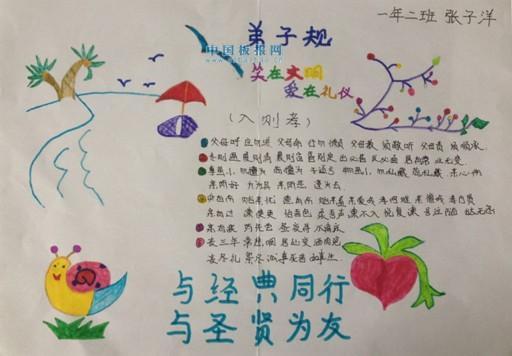 一年二班 张子洋
弟子规
中国板报网
笑在文明
爱在礼仪
(入则孝)
父母呼 应勿 父母命 行勿懒 父母教 须敬听 父母责 须顺承
冬则温 夏则 晨则省 昏则定 出必告 反必面 居有常 业无变
事虽小 勿擅为 苟擅为 子道亏 物虽小 勿私藏 苟私藏 亲心伤
亲所好 力为具 亲所恶 谨为去
身有伤 贻亲忧 德有伤 贻亲羞 亲爱我 孝何难 亲憎我 孝方贤
亲有过 谏使更 怡吾色 柔吾声 谏不入 悦复谏 号泣随 挞无怨
亲有疾 药先尝 昼夜侍 不离床
丧三年 常悲咽 居处变 酒肉绝
丧尽礼 祭尽诚 事死者 如事生
与经典同行
与圣贤为友